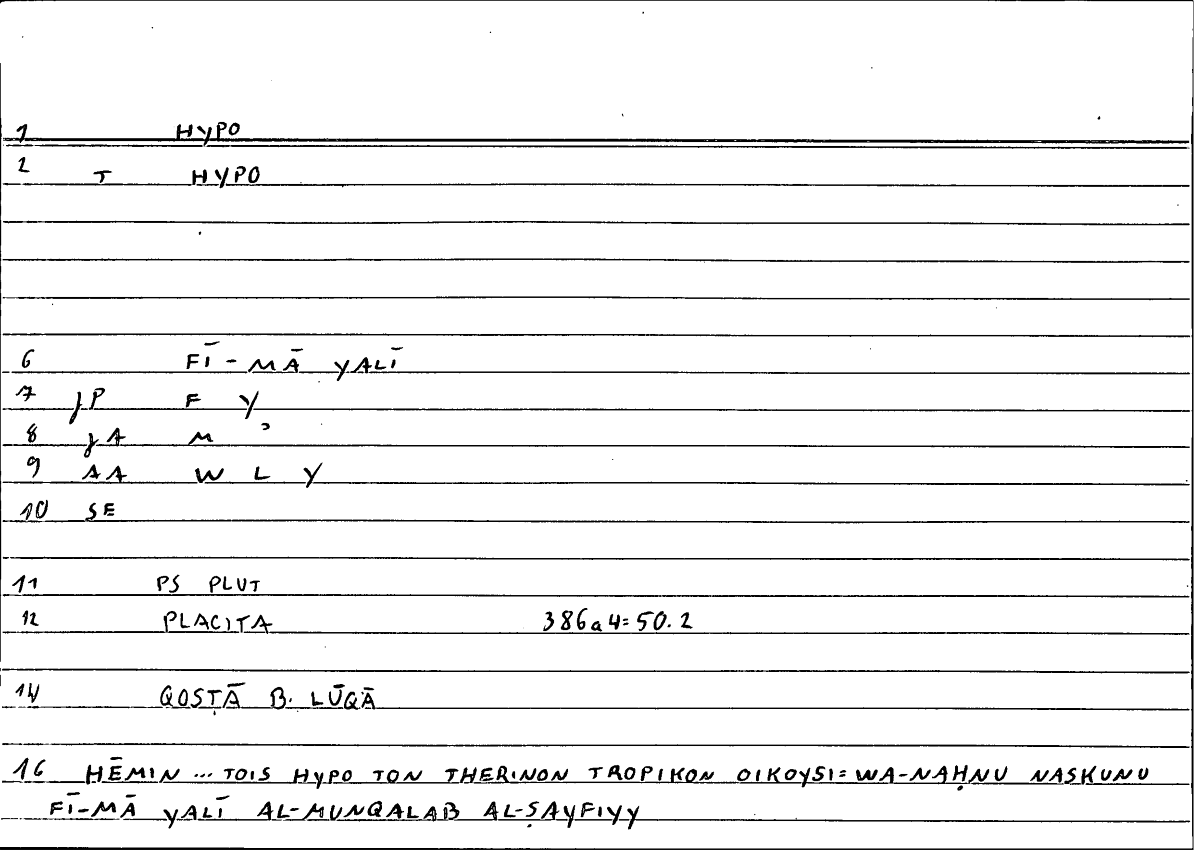 1 HYPO
2 T HYPO
6 FĪ-MĀ YALĪ
7 JP F Y
8 JA M ʾ
9 AA W L Y
10 SE
11 PS PLUT
12 PLACITA 386a4=50.2
14 QOSṬĀ B. LŪQĀ
16 HĒMIN ... TOIS HYPO TON THERINON TROPIKON OIKOYSI = WA-NAḤNU NASKUNU
FĪ-MĀ YALĪ AL-MUNQALAB AL-ṢAYFIYY